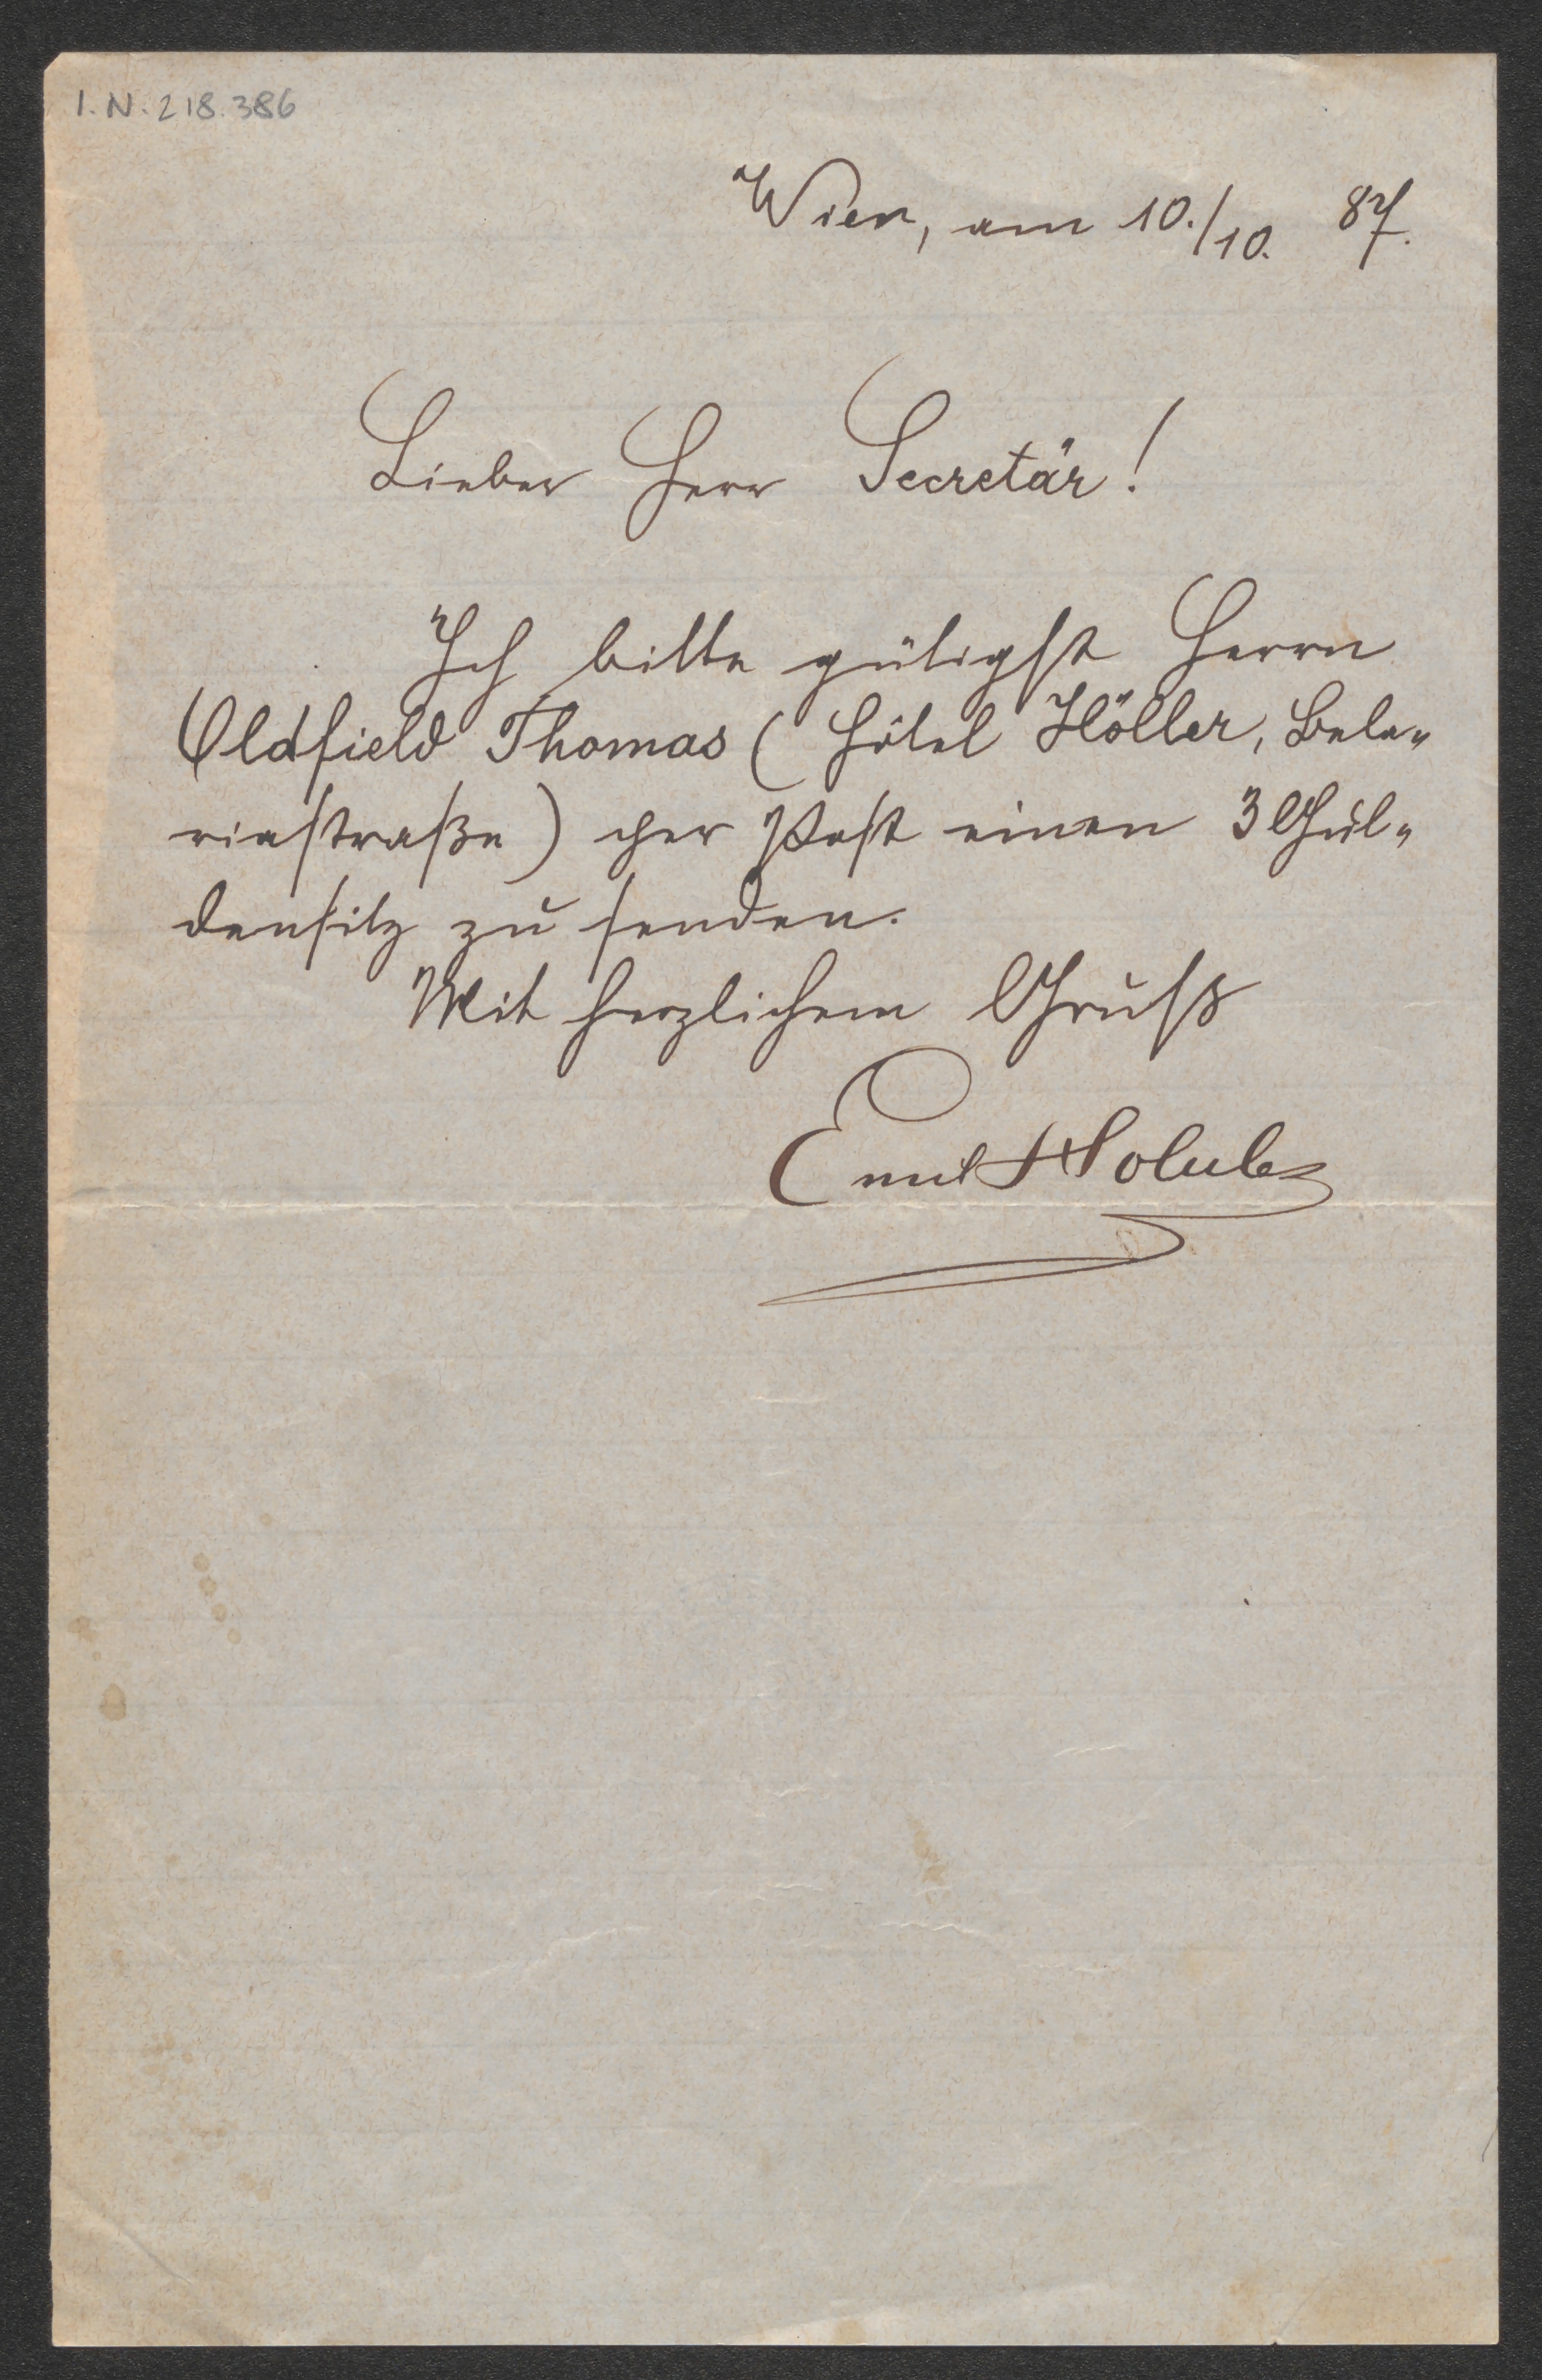 I.N. 218.386
Wien, am 10./10. 87.
Lieber Herr Secretär!
Ich bitte gütigst Herrn
Oldfield Thomas (Hôtel Höller, Bela=
riastraße) per Post einen 3 Gul=
densitz zu senden.
Mit herzlichem Gruß
Emil Holub